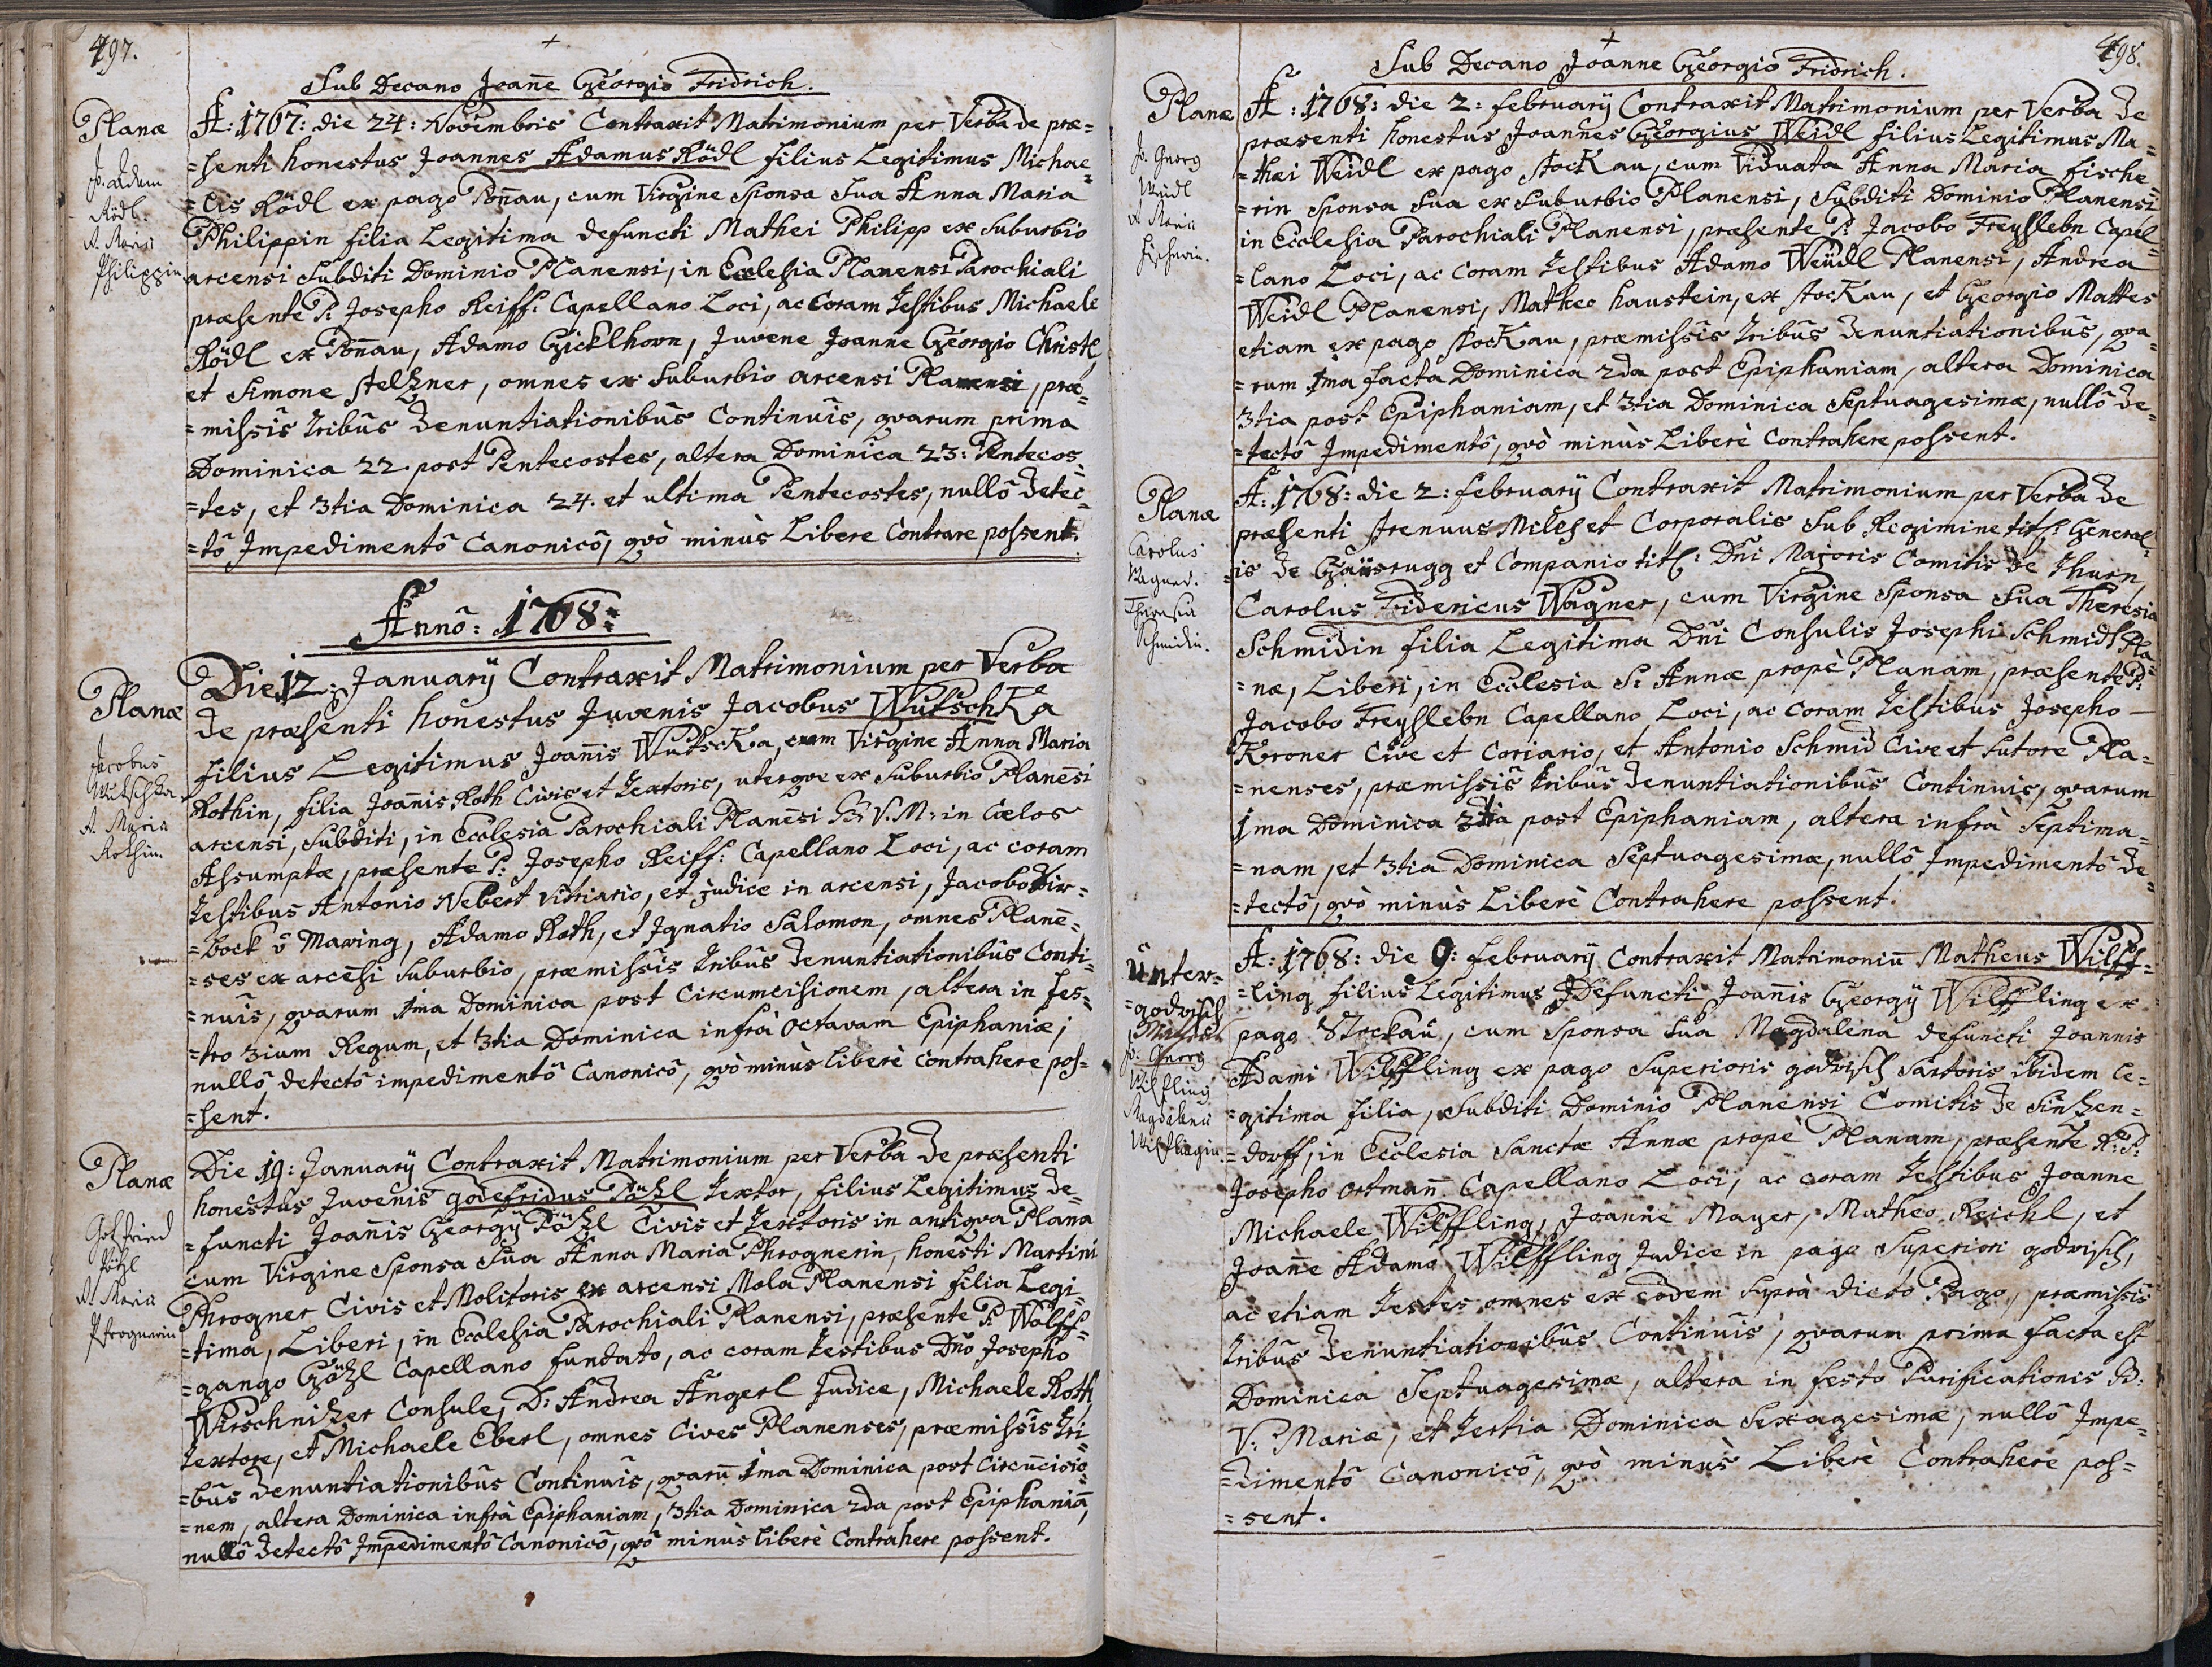 497.
+
Sub Decano Joañe Georgio Fridrich.
Planæ
Jo. Adam
Rödl.
A. Maria
Philippin
A: 1767: die 24: Novembris Contraxit Matrimonium per Verba de præ=
=senti honestus Joannes Adamus Rödl filius Legitimus Michae=
=lis Rödl ex pago Poñau, cum Virgine Sponsa Sua Anna Maria
Philippin filia Legitima defuncti Mathei Philipp ex Suburbio
arcensi Subditi Dominio Planensi, in Ecclesia Planensi Parochiali
præsente P: Josepho Reiff: Capellano Loci, ac Coram Testibus Michaele
Rödl ex Poñau, Adamo Gicklhorn, Juvene Joanne Georgio Christl,
et Simone Stelzner, omnes ex Suburbio arcensi Planensi, præ=
=missis tribus Denuntiationibus Continuis, qvarum prima
Dominica 22. post Pentecostes, altera Dominica 23: Pentecos=
=tes, et 3tia Dominica 24. et ultima Pentecostes, nullô Detec=
=tô Impedimentô Canonicô, qvò minùs Libere Contrare possent.
Annô: 1768:
Planæ
Jacobus
Wutschka
A. Maria
Rothin
Die 12: Januarÿ Contraxit Matrimonium per Verba
de præsenti honestus Juvenis Jacobus Wutschka
filius Legitimus Joañis Wutscka, cum Virgine Anna Maria
Rothin, filia Joañis Roth Civis et Textoris, uterqve ex Suburbio Planeñsi
arcensi, Subditi, in Ecclesia Parochiali Planeñsi B: V. M: in Cælos
Assumptæ, præsente P: Josepho Reiff: Capellano Loci, ac coram
Testibus Antonio Nebert vitriario, et judice in arcensi, Jacobo Zir=
=bock ô Maxing, Adamo Roth, et Ignatio Salomon, omnes Planẽ=
=ses ex arcẽsi Suburbio, præmissis tribus Denuntiationibus Conti=
=nuis, qvarum 1ma Dominica post Circumcisionem, altera in fes=
=tro 3ium Regum, et 3tia Dominica infrà Octavam Epiphaniæ,
nullô detectô impedimentô Canonicô, qvò minùs liberè contrahere pos=
=sent.
Planæ
Gotfried
Pötzl
A. Maria
Phrognerin
Die 19: Januarÿ Contraxit Matrimonium per Verba de præsenti
honestus Juvenis godefridus Pötzl Textor, filius Legitimus de=
=functi Joañis Georgÿ Pötzl Civis et Textoris in antiqva Plana
cum Virgine Sponsa Sua Anna Maria Phrognerin, honesti Martini
Phrogner Civis et Molitoris ex arcensi Mola Planensi filia Legi=
=tima, Liberi, in Ecclesia Parochiali Planensi, præsente P. Wolff=
=gango Götzl Capellano fundato, ac coram testibus Dño Josepho
Wirschnitzer Consule, D: Andrea Angerl Judice, Michaele Roth
textore, et Michaele Eberl, omnes Cives Planenses, præmissis tri=
=bus Denuntiationibus Continuis, qvarũ 1ma Dominica post Circũcisio=
=nem, altera Dominica infrà Epiphaniam, 3tia Dominica 2da post Epiphaniã,
nullô Detectô Impedimentô Canonicô, qvò minùs liberè Contrahere possent.
498.
+
Sub Decano Joanne Georgio Fridrich.
Planæ
Jo. Georg
Weidl
A. Maria
Fischerin.
A: 1768: die 2: februarÿ Contraxit Matrimonium per Verba de
præsenti honestus Joannes Georgius Weidl filius Legitimus Ma=
=thæi Weidl ex pago Stockau, cum Viduata Anna Maria fische=
=rin Sponsa Sua ex Suburbio Planensi, Subditi Dominio Planensi,
in Ecclesia Parochiali Planensi, præsente P: Jacobo Freyslebn Capel=
=lano Loci, ac coram testibus Adamo Weidl Planensi, Andrea
Weidl Planensi, Matheo haustein, ex Stockau, et Georgio Mattes
etiam ex pago Stockau, præmissis tribus Denuntiationibus, qva=
=rum 1ma facta Dominica 2da post Epiphaniam, altera Dominica
3tia post Epiphaniam, et 3tia Dominica Septuagesimæ, nullô de=
=tectô Impedimentô, qvò minùs Liberè Contrahere possent.
Planæ
Carolus
Wagner.
Theresia
Schmidin.
A: 1768: die 2: februarÿ Contraxit Matrimonium per Verba de
præsenti strenuus Miles et Corporalis Sub Regimine titl: General=
=is de Gaisrugg et Companio titl: Dñi Majoris Comitis de Thurn,
Carolus Fridericus Wagner, cum Virgine Sponsa Sua Theresia
Schmidin filia Legitima Dñi Consulis Josephi Schmidt Pla=
=næ, Liberi, in Ecclesia S: Annæ propè Planam, præsente P:
Jacobo Freyslebn Capellano Loci, ac coram Testibus Josepho
Kroner Cive et Coriario, et Antonio Schmid Cive et Sutore Pla=
=nenses, præmissis tribus Denuntiationibus Continuis, qvarum
1ma Dominica 3tia post Epiphaniam, altera infrà Septima=
=nam, et 3tia Dominica Septuagesimæ, nullô Impedimentô de=
=tectô, qvò minùs Liberè Contrahere possent.
Unter=
=godrisch
Jo: Georg
Wilffling
Magdalena
Wilfflingin
A: 1768: die 9: februarÿ Contraxit Matrimoniũ Matheus Wilff=
=ling filius Legitimus Defuncti Joañis Georgÿ Wilffling ex
pago Stockau, cum Sponsa Sua Magdalena defuncti Joannis
Adami Wilffling ex pago Superioris godrisch Sartoris ibidem le=
=gitima filia, Subditi Dominio Planensi Comitis de Sintzen=
=dorff, in Ecclesia Sanctæ Annæ propè Planam, præsente R: P:
Josepho Ortmañ Capellano Loci, ac coram testibus Joanne
Michaele Wilffling, Joanne Mayer, Matheo Reichl, et
Joañe Adamo Wilffling Judice in pago Superiori godrisch,
ac etiam testes omnes ex eôdem Suprà dicto Pago, præmissis
tribus Denuntiationibus Continuis, qvarum prima facta est
Dominica Septuagesimæ, altera in festo Purificationis B:
V: Mariæ, et tertia Dominica Sexagesimæ, nullô Impe=
=dimentô Canonicô, qvò minùs Liberè Contrahere pos=
=sent.